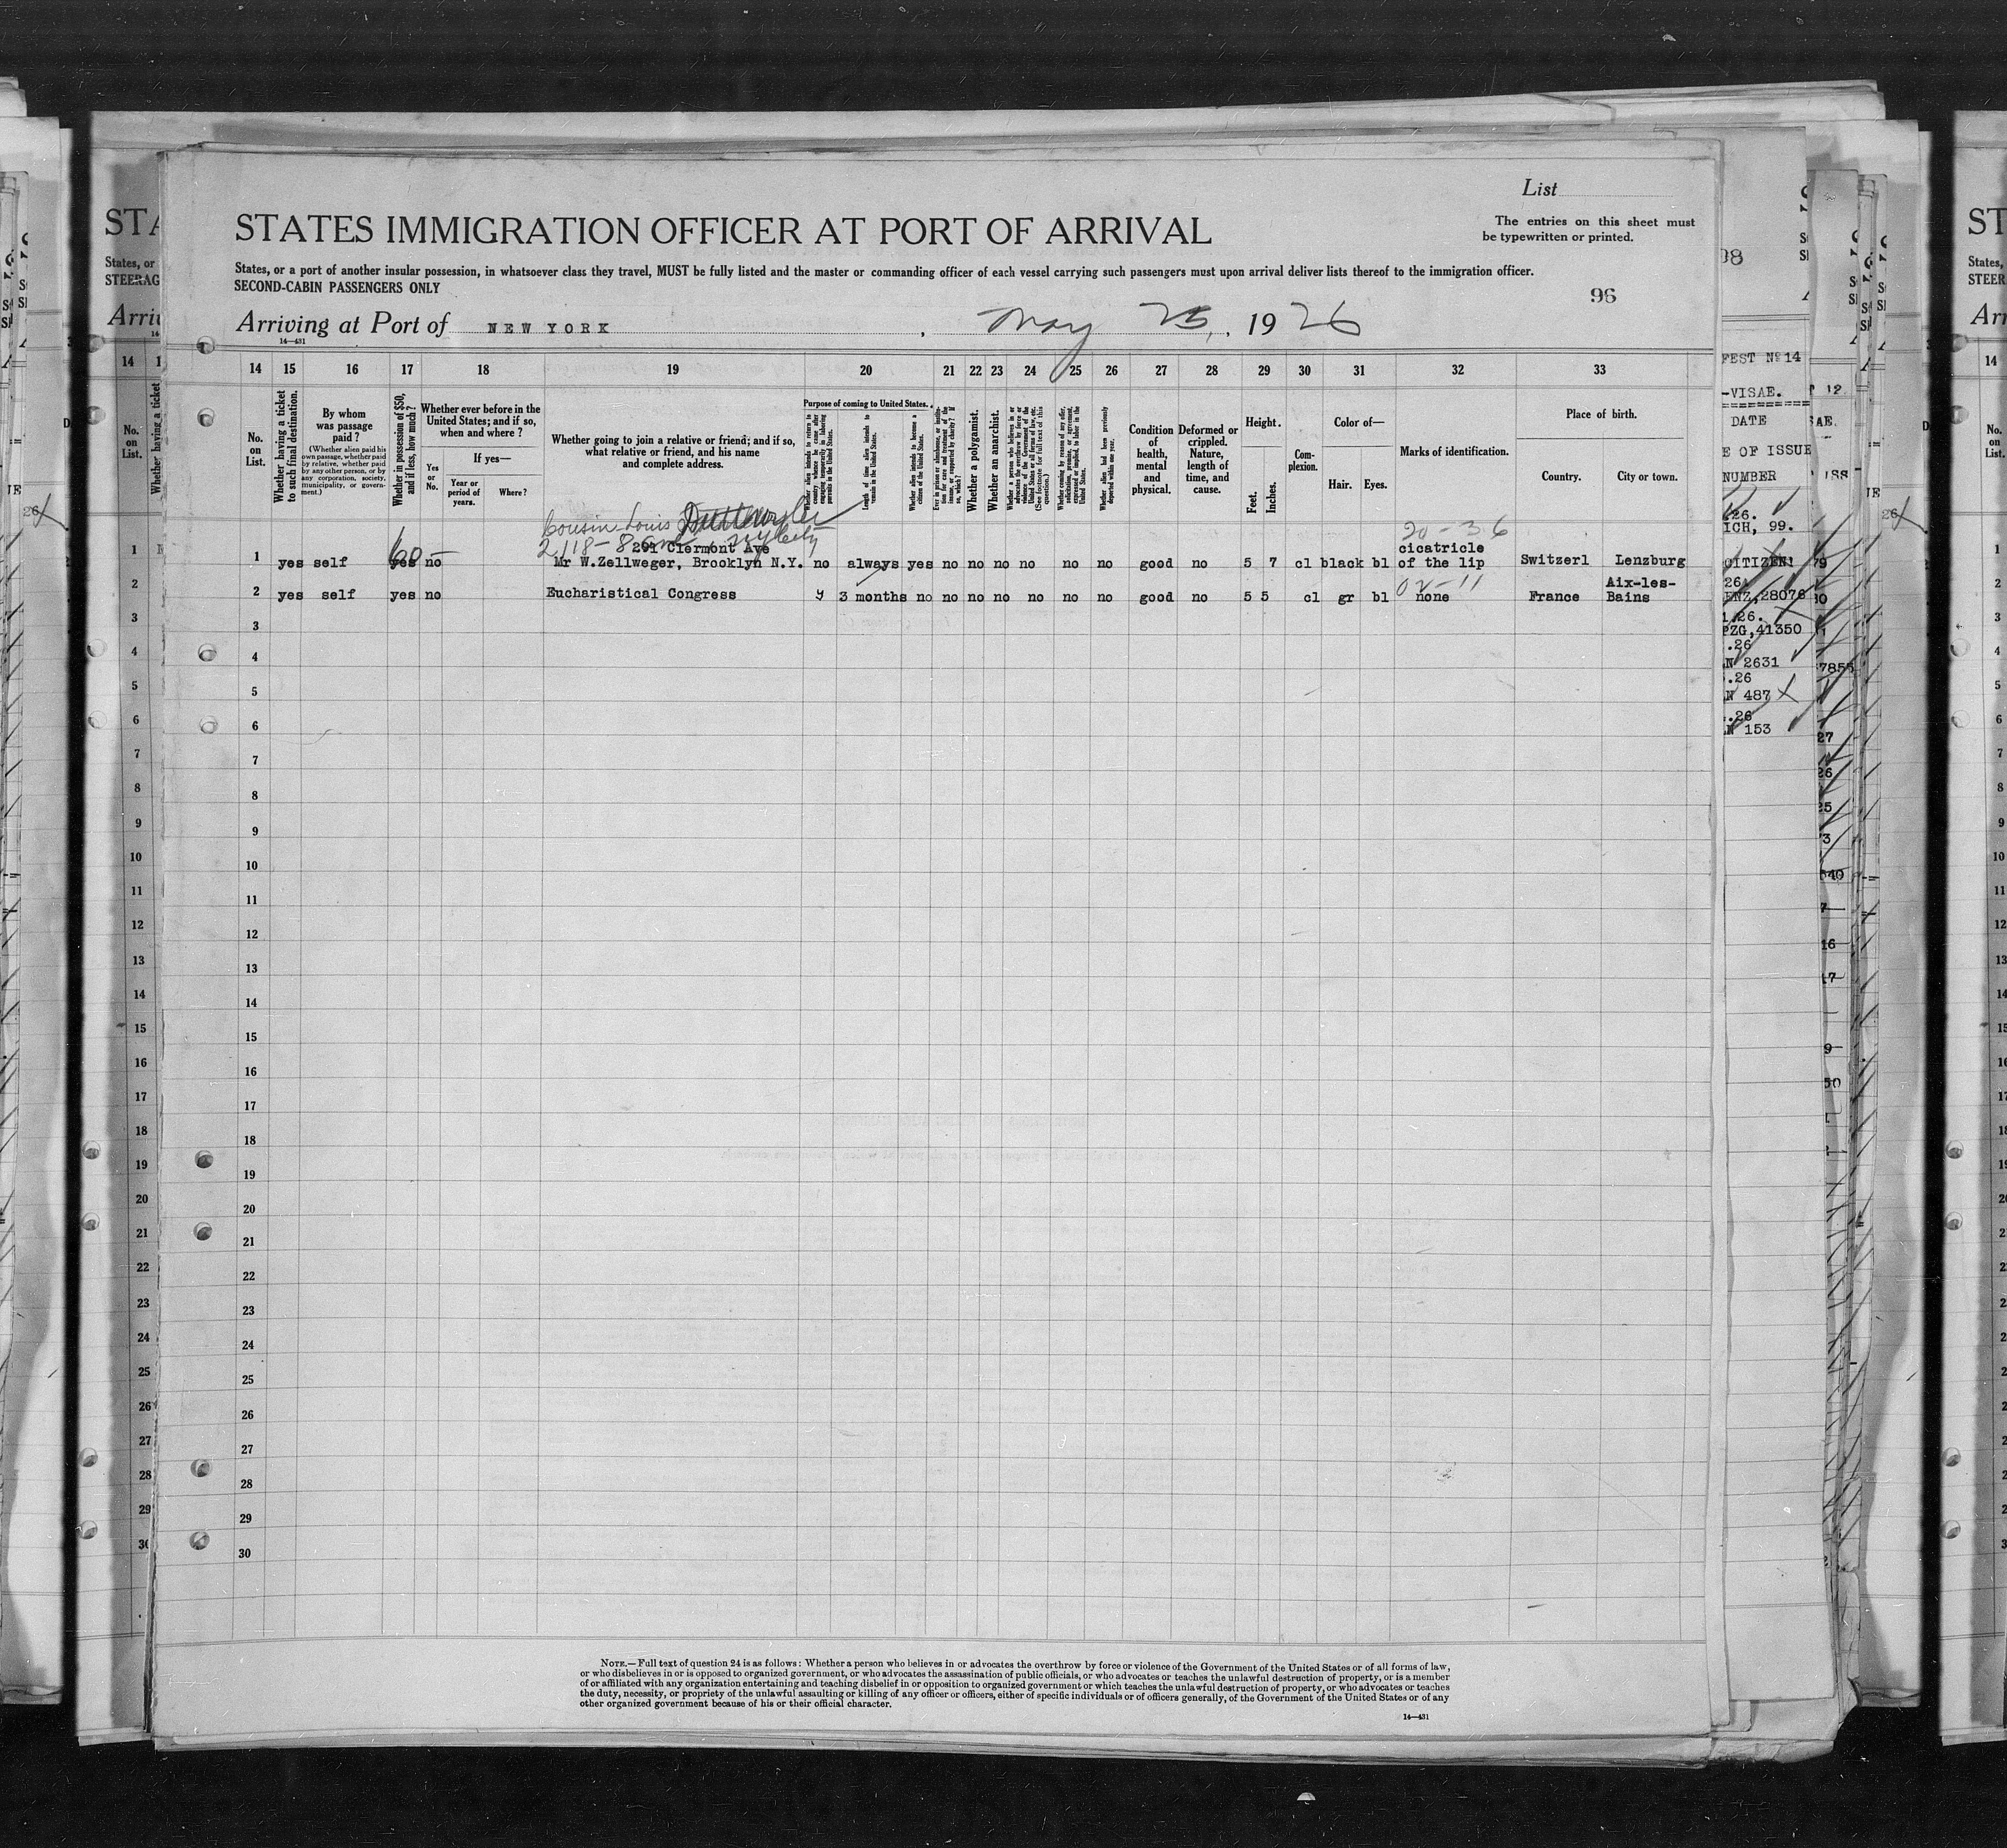 List
STATES IMMIGRATION OFFICER AT PORT OF ARRIVAL
The entries on this sheet must
be typewritten or printed.
States, or a port of another insular possession, in whatsoever class they travel, MUST be fully listed and the master or commanding officer of each vessel carrying such passengers must upon arrival deliver lists thereof to the immigration officer.
SECOND-CABIN PASSENGERS ONLY
96
Arriving at Port of NEW YORK, May 25, 1926
14—431
14 15 16 17 18 19 20 21 22 23 24 25 26 27 28 29 30 31 32 33
No. on List.
Whether having a ticket to such final destination.
By whom was passage paid?
(Whether alien paid his own passage, whether paid by relative, whether paid by any other person, or by any corporation, society, municipality, or government.)
Whether in possession of $50, and if less, how much?
Whether ever before in the United States; and if so, when and where?
Yes or No.
If yes—
Year or period of years.
Where?
Whether going to join a relative or friend; and if so, what relative or friend, and his name and complete address.
Purpose of coming to United States.
Whether alien intends to return to country whence he came after engaging temporarily in laboring pursuits in the United States.
Length of time alien intends to remain in the United States.
Whether alien intends to become a citizen of the United States.
Ever in prison or almshouse, or institution for care and treatment of the insane, or supported by charity? If so, which?
Whether a polygamist.
Whether an anarchist.
Whether a person who believes in or advocates the overthrow by force or violence of the Government of the United States or all forms of law, etc. (See footnote for full text of this question.)
Whether coming by reason of any offer, solicitation, promise, or agreement, expressed or implied, to labor in the United States.
Whether alien had been previously deported within one year.
Condition of health, mental and physical.
Deformed or crippled. Nature, length of time, and cause.
Height.
Feet.
Inches.
Complexion.
Color of—
Hair.
Eyes.
Marks of identification.
Place of birth.
Country.
City or town.
Cousin Louis
20-36
2118-82nd NyCity
291 Clermont Ave
cicatricle
1 yes self yes 60 no Mr W.Zellweger, Brooklyn N.Y. no always yes no no no no no no good no 5 7 cl black bl of the lip Switzerl Lenzburg
02-11
Aix-les-
2 yes self yes no Eucharistical Congress y 3 months no no no no no no no good no 5 5 cl gr bl none France Bains
3
4
5
6
7
8
9
10
11
12
13
14
15
16
17
18
19
20
21
22
23
24
25
26
27
28
29
30
NOTE.—Full text of question 24 is as follows: Whether a person who believes in or advocates the overthrow by force or violence of the Government of the United States or of all forms of law,
or who disbelieves in or is opposed to organized government, or who advocates the assassination of public officials, or who advocates or teaches the unlawful destruction of property, or is a member
of or affiliated with any organization entertaining and teaching disbelief in or opposition to organized government or which teaches the unlawful destruction of property, or who advocates or teaches
the duty, necessity, or propriety of the unlawful assaulting or killing of any officer or officers, either of specific individuals or of officers generally, of the Government of the United States or of any
other organized government because of his or their official character.
14—431
98
FEST Nº14
-VISAE.
DATE
E OF ISSUE
NUMBER
.26.
ICH, 99.
CITIZEN!
26.
ENZ,28076
1.26.
PZG,41350
.26
N 2631
.26
N 487
.26
N 153